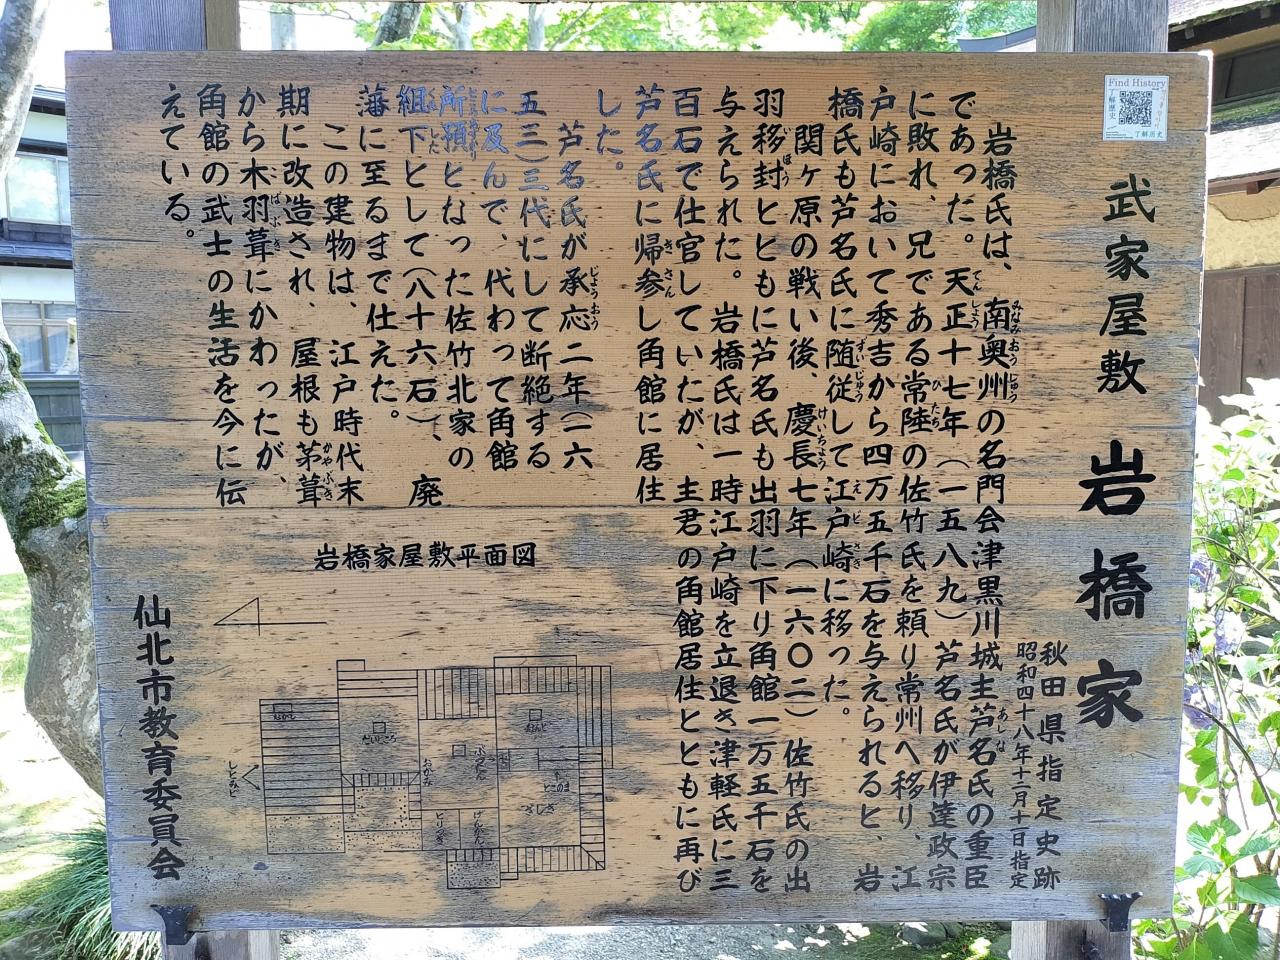 武家屋敷 岩橋家
秋田県指定史跡
昭和四十八年十二月十一日指定
岩橋氏は、南奥州の名門会津黒川城主芦名氏の重臣
であった。天正十七年(一五八九)芦名氏が伊達政宗
に敗れ、兄である常陸の佐竹氏を頼り常州へ移り、江
戸崎において秀吉から四万五千石を与えられると、岩
橋氏も芦名氏に随従して江戸崎に移った。
関ヶ原の戦い後、慶長七年(一六〇二)佐竹氏の出
羽移封とともに芦名氏も出羽に下り角館一万五千石を
与えられた。岩橋氏は一時江戸崎を立退き津軽氏に三
百石で仕官していたが、主君の角館居住とともに再び
芦名氏に帰参し角館に居住
した。
芦名氏が承応二年(一六
五三)三代にして断絶する
に及んで、代わって角館
所預となった佐竹北家の
組下として(八十六石)、廃
藩に至るまで仕えた。
この建物は、江戸時代末
期に改造され、屋根も茅葺
から木羽葺にかわったが、
角館の武士の生活を今に伝
えている。
岩橋家屋敷平面図
だいどころ
おかみ
ざしき
とこのま
しとみど
仙北市教育委員会
Find History
了解歴史
了解历史